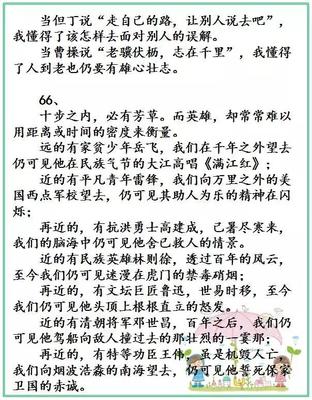 当但丁说“走自己的路，让别人说去吧”，
我懂得了该怎样去面对别人的误解。
当曹操说“老骥伏枥，志在千里”，我懂得
了人到老也仍要有雄心壮志。
66、
十步之内，必有芳草。而英雄，却常常难以
用距离或时间的密度来衡量。
远的有家贫少年岳飞，我们在千年之外望去
仍可见他在民族气节的大江高唱《满江红》；
近的有平凡青年雷锋，我们向万里之外的美
国西点军校望去，仍可见其助人为乐的精神在闪
烁；
再近的，有抗洪勇士高建成，已暑尽寒来，
我们的脑海中仍可见他舍已救人的情景。
远的有民族英雄林则徐，透过百年的风云，
至今我们仍可见迷漫在虎门的禁毒硝烟；
近的，有文坛巨匠鲁迅，世易时移，至今我
们仍可见他头顶上根根直立的怒发。
近的有清朝将军邓世昌，百年之后，我们仍
可见他驾船向敌人撞过去的那壮烈的一宴那；
再近的，有特等功臣王伟，虽是机毁人亡，
我们向烟波浩淼的南海望去，仍可见他誓死保家
卫国的赤诚。